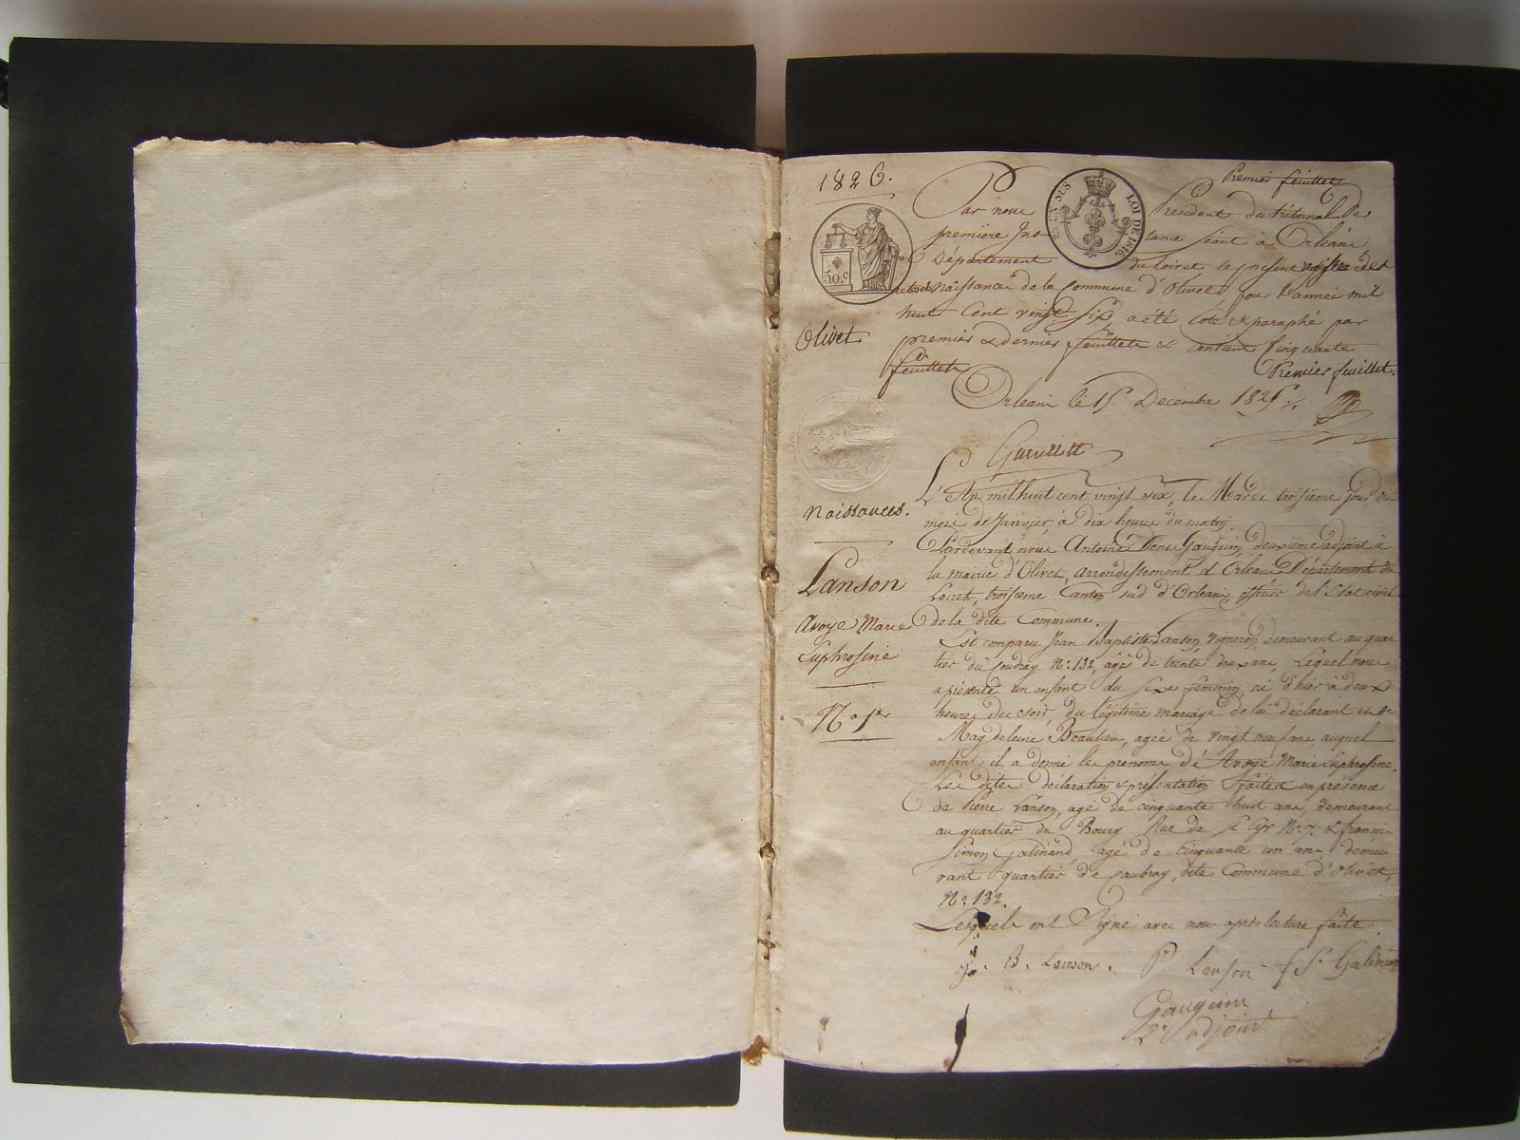 1826.
Premier feuillet
Par nous Président du tribunal de
première Ins tance séant à Orléans
Département du Loiret le présent registre des
actes de Naissance de la Commune d'Olivet, pour l'année mil
huit Cent vingt six a été coté & paraphé par
premier & dernier feuillets & contient Cinquante
feuillets
Premier feuillet.
Orléans le 15 Décembre 1825
50.c
LOI DE 1816
Olivet
Naissances.
L'An mil huit cent vingt six, le Mardi troisième jour du
mois de Janvier, à dix heures du matin.
Pardevant nous Antoine Denis Gauguin deuxième adjoint à
la mairie d'Olivet, arrondissement d'Orléans Département du
Loiret, troisième Canton sud d'Orléans, officier de l'Etat civil
de la dite Commune.
Lanson
Avoye Marie
Euphrosine
N.o 1.er
Est comparu Jean Baptiste Lanson, vigneron, demeurant au quar
tier du N.o 132, agé de trente deux ans, Lequel nous
a présenté un enfant du sexe féminin, né d'hier à deux
heures du soir, du légitime mariage de lui déclarant et de
Magdeleine Beaulieu, agée de vingt neuf ans, auquel
enfant il a donné les prénoms de Avoye Marie Euphrosine.
Les dites déclaration & présentation faites en présence
de Pierre Lanson, agé de cinquante huit ans, demeurant
au quartier du Bourg Rue de St Cyr N.o 7. & françois
Simon Galinand, agé de Cinquante un ans demeu
rant quartier de dite Commune d'Olivet,
N.o 132.
Lesquels ont Signé avec nous après lecture faite.
J. B. Lanson. P Lanson f S Galinand
Gauguin
2e adjoint